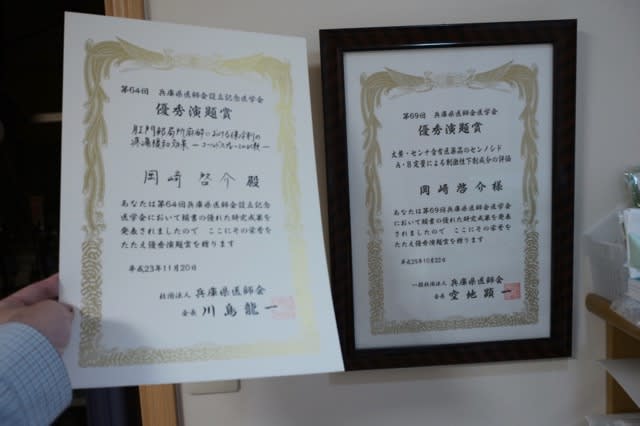 第64回 兵庫県医師会設立記念医学会
優秀演題賞
肛門部局所麻酔における保冷剤の
疼痛緩和効果
岡崎啓介殿
あなたは第64回兵庫県医師会設立記念
医学会において頭書の優れた研究成果を発
表されましたので ここにその栄誉を
たたえ優秀演題賞を贈ります
平成23年11月20日
社団法人 兵庫県医師会
会長 川島龍一
第69回 兵庫県医師会医学会
優秀演題賞
大黄・センナ含有医薬品のセンノシド
A・B定量による刺激性下剤成分の評価
岡崎啓介様
あなたは第69回兵庫県医師会医学会
において頭書の優れた研究成果を発表
されましたので ここにその栄誉を
たたえ優秀演題賞を贈ります
一般社団法人 兵庫県医師会
会長 空地顕一